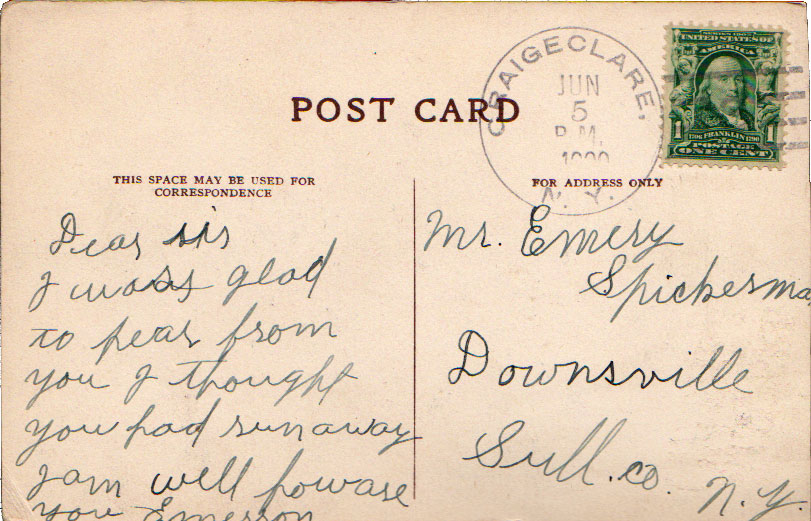 POST CARD
CRAIGECLARE,
JUN
5
P.M.
N. Y.
SERIES 1902
UNITED STATES OF
AMERICA
1 FRANKLIN 1
POSTAGE
ONE CENT
THIS SPACE MAY BE USED FOR
CORRESPONDENCE
Dear sis
I was glad
to hear from
you I thought
you had run away
I am well howare
you Emerson
FOR ADDRESS ONLY
Mr. Emery
Spickerma
Downsville
Sull. co. N.Y.